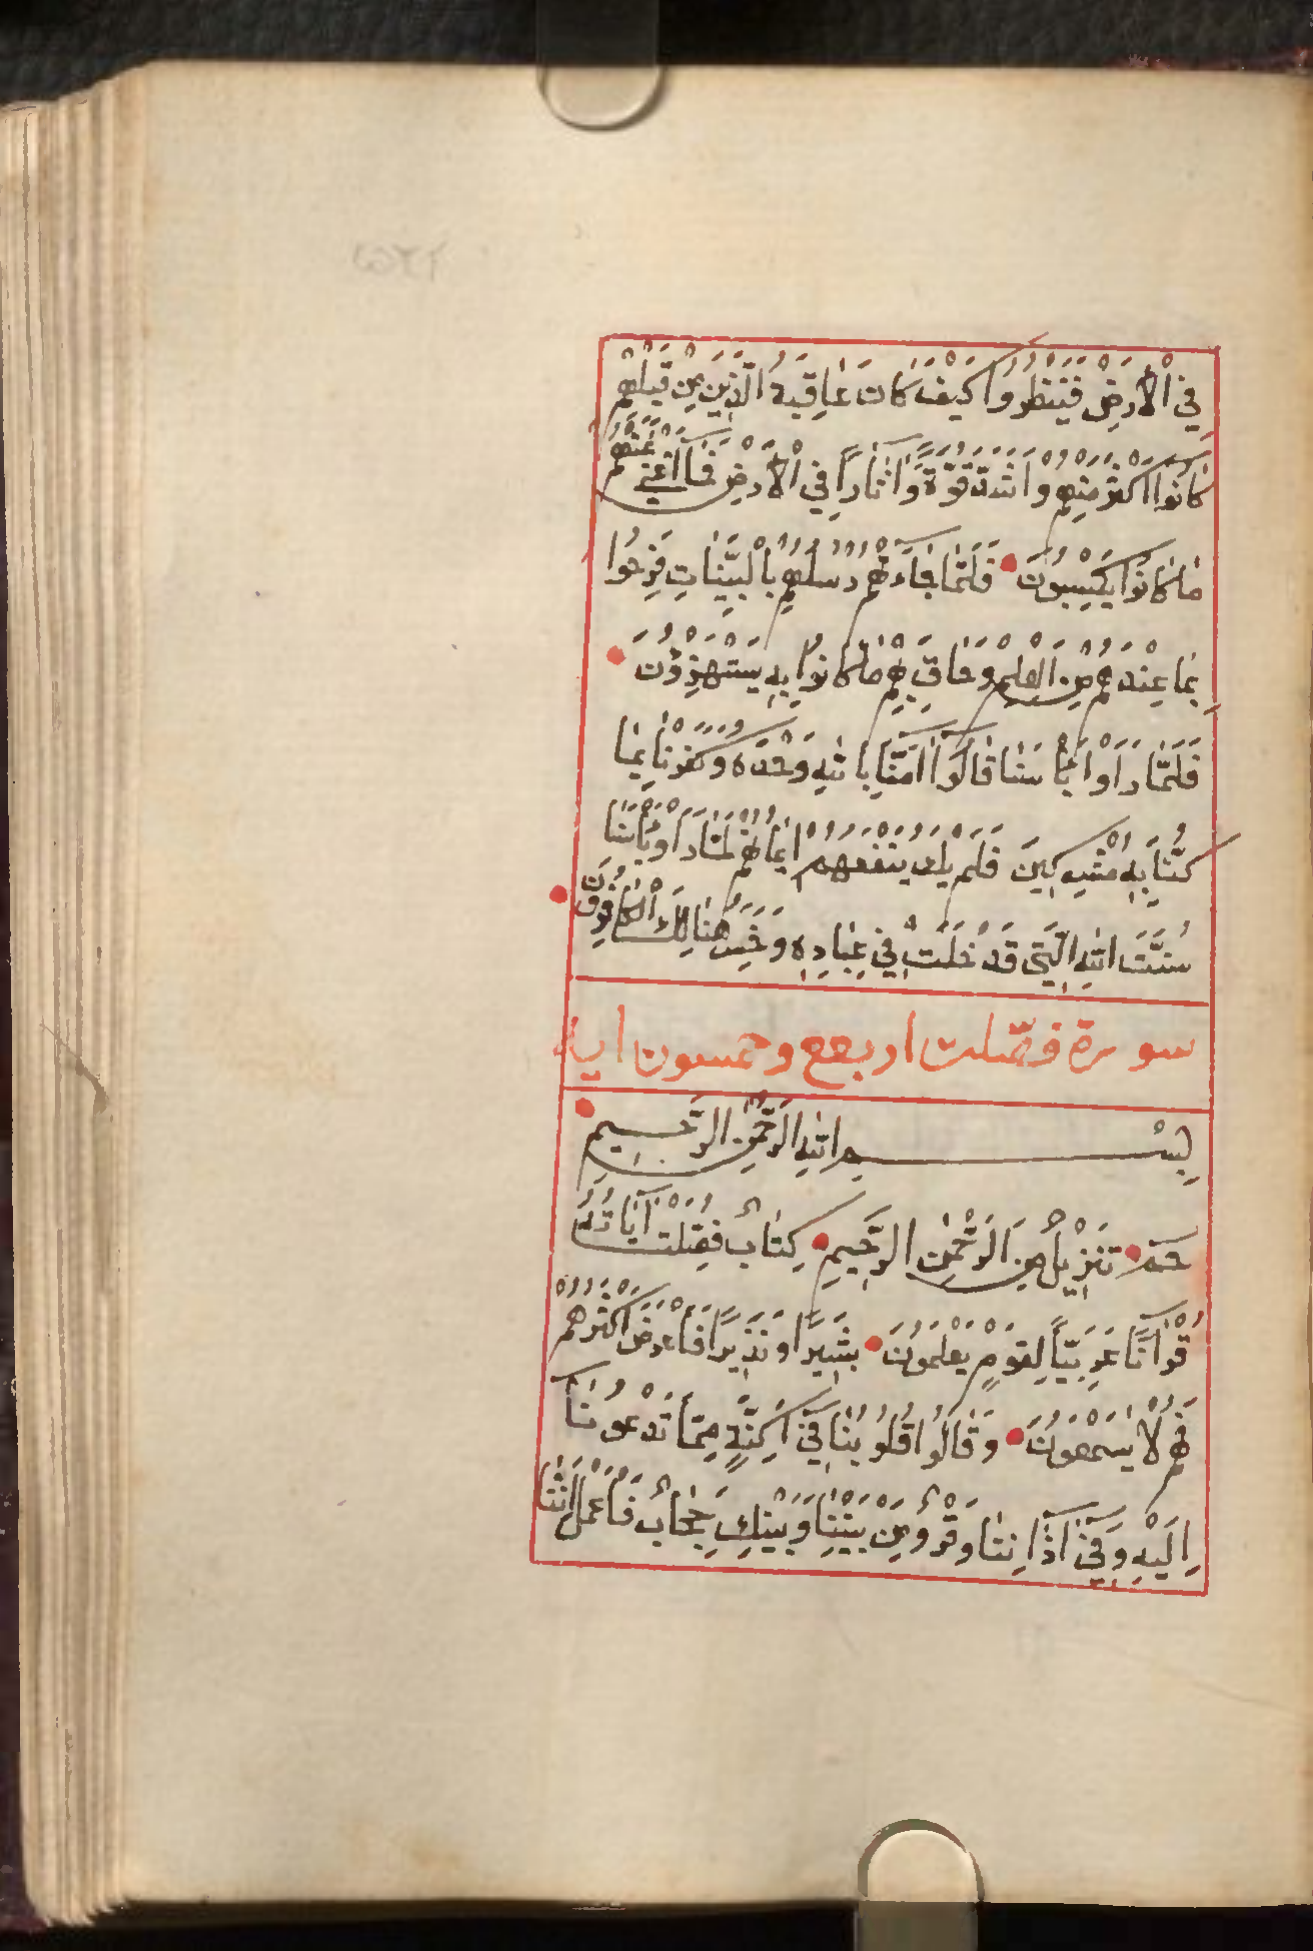 فِي الْاَرْضِ فَيَنْظُرُوا كَيْفَ كَانَ عَاقِبَةُ الَّذِينَ مِنْ قَبْلِهِمْ
كَانُوا اَكْثَرَ مِنْهُمْ وَاَشَدَّ قُوَّةً وَاٰثَاراً فِي الْاَرْضِ فَمَا اَغْنٰى عَنْهُمْ
مَا كَانُوا يَكْسِبُونَ فَلَمَّا جَاءَتْهُمْ رُسُلُهُمْ بِالْبَيِّنَاتِ فَرِحُوا
بِمَا عِنْدَهُمْ مِنَ الْعِلْمِ وَحَاقَ بِهِمْ مَا كَانُوا بِهِ يَسْتَهْزِؤُنَ
فَلَمَّا رَاَوْا بَأْسَنَا قَالُوا اٰمَنَّا بِاللّٰهِ وَحْدَهُ وَكَفَرْنَا بِمَا
كُنَّا بِهِ مُشْرِكِينَ فَلَمْ يَكُ يَنْفَعُهُمْ اِيمَانُهُمْ لَمَّا رَاَوْا بَأْسَنَا
سُنَّتَ اللّٰهِ الَّتِي قَدْ خَلَتْ فِي عِبَادِهِ وَخَسِرَ هُنَالِكَ الْكَافِرُونَ
سورة فصّلت اربع وخمسون اية
بِسْمِ اللّٰهِ الرَّحْمٰنِ الرَّحِيمِ
حٰمٓ تَنْزِيلٌ مِنَ الرَّحْمٰنِ الرَّحِيمِ كِتَابٌ فُصِّلَتْ اٰيَاتُهُ
قُرْاٰنًا عَرَبِيّاً لِقَوْمٍ يَعْلَمُونَ بَشِيرًا وَنَذِيرًا فَاَعْرَضَ اَكْثَرُهُمْ
فَهُمْ لَا يَسْمَعُونَ وَقَالُوا قُلُوبُنَا فِي اَكِنَّةٍ مِمَّا تَدْعُونَا
اِلَيْهِ وَفِي اٰذَانِنَا وَقْرٌ وَمِنْ بَيْنِنَا وَبَيْنِكَ حِجَابٌ فَاعْمَلْ اِنَّنَا